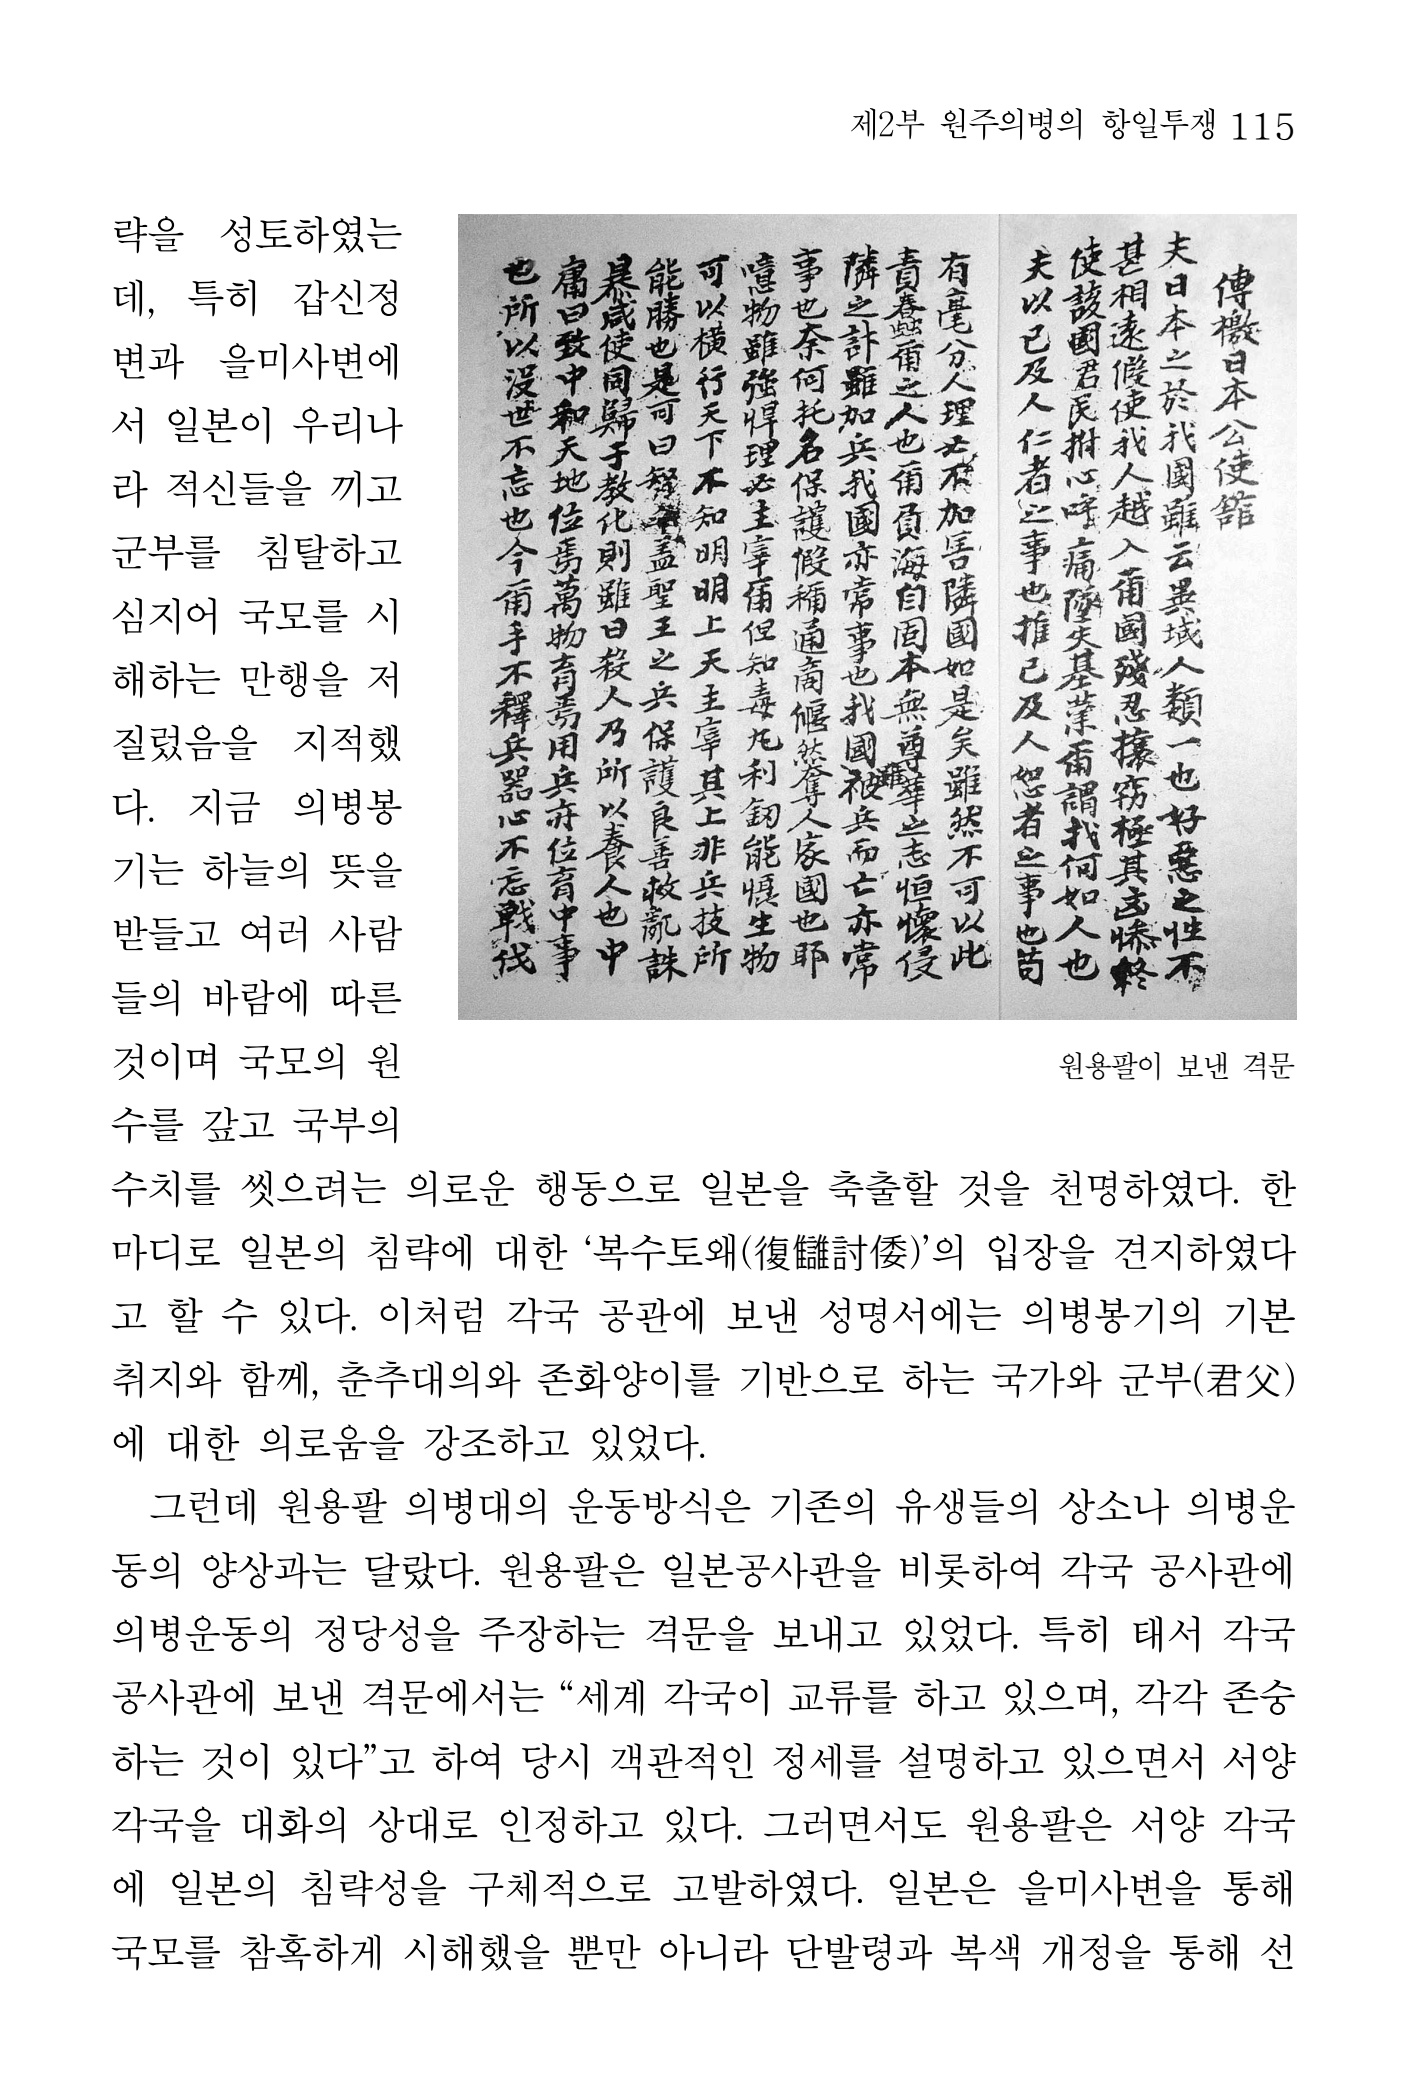 제2부 원주의병의 항일투쟁 115
락을 성토하였는
데, 특히 갑신정
변과 을미사변에
서 일본이 우리나
라 적신들을 끼고
군부를 침탈하고
심지어 국모를 시
해하는 만행을 저
질렀음을 지적했
다. 지금 의병봉
기는 하늘의 뜻을
받들고 여러 사람
들의 바람에 따른
것이며 국모의 원
수를 갚고 국부의
傳檄日本公使舘
夫日本之於我國雖云異域人類一也好惡之性不
甚相遠假使我人越入爾國殘忍攘窃極其凶慘終
使該國君民拊心呼痛墜失基業爾謂我何如人也
夫以己及人仁者之事也推己及人恕者之事也苟
有毫分人理必不加害隣國如是矣雖然不可以此
責蠢爾之人也爾負海自固本無尊華之志恒懷侵
隣之計雖加兵我國亦常事也我國雖被兵而亡亦常
事也奈何托名保護假稱通商偃然奪人家國也耶
噫物雖强悍理必主宰爾但知毒丸利釰能惧生物
可以橫行天下不知明明上天主宰其上非兵技所
能勝也是可曰智乎盖聖王之兵保護良善救亂誅
暴咸使同歸于教化則雖曰殺人乃所以養人也中
庸曰致中和天地位焉萬物育焉用兵亦位育中事
也所以沒世不忘也今爾手不釋兵器心不忘戰伐
원용팔이 보낸 격문
수치를 씻으려는 의로운 행동으로 일본을 축출할 것을 천명하였다. 한
마디로 일본의 침략에 대한 ‘복수토왜(復讎討倭)’의 입장을 견지하였다
고 할 수 있다. 이처럼 각국 공관에 보낸 성명서에는 의병봉기의 기본
취지와 함께, 춘추대의와 존화양이를 기반으로 하는 국가와 군부(君父)
에 대한 의로움을 강조하고 있었다.
그런데 원용팔 의병대의 운동방식은 기존의 유생들의 상소나 의병운
동의 양상과는 달랐다. 원용팔은 일본공사관을 비롯하여 각국 공사관에
의병운동의 정당성을 주장하는 격문을 보내고 있었다. 특히 태서 각국
공사관에 보낸 격문에서는 “세계 각국이 교류를 하고 있으며, 각각 존숭
하는 것이 있다”고 하여 당시 객관적인 정세를 설명하고 있으면서 서양
각국을 대화의 상대로 인정하고 있다. 그러면서도 원용팔은 서양 각국
에 일본의 침략성을 구체적으로 고발하였다. 일본은 을미사변을 통해
국모를 참혹하게 시해했을 뿐만 아니라 단발령과 복색 개정을 통해 선